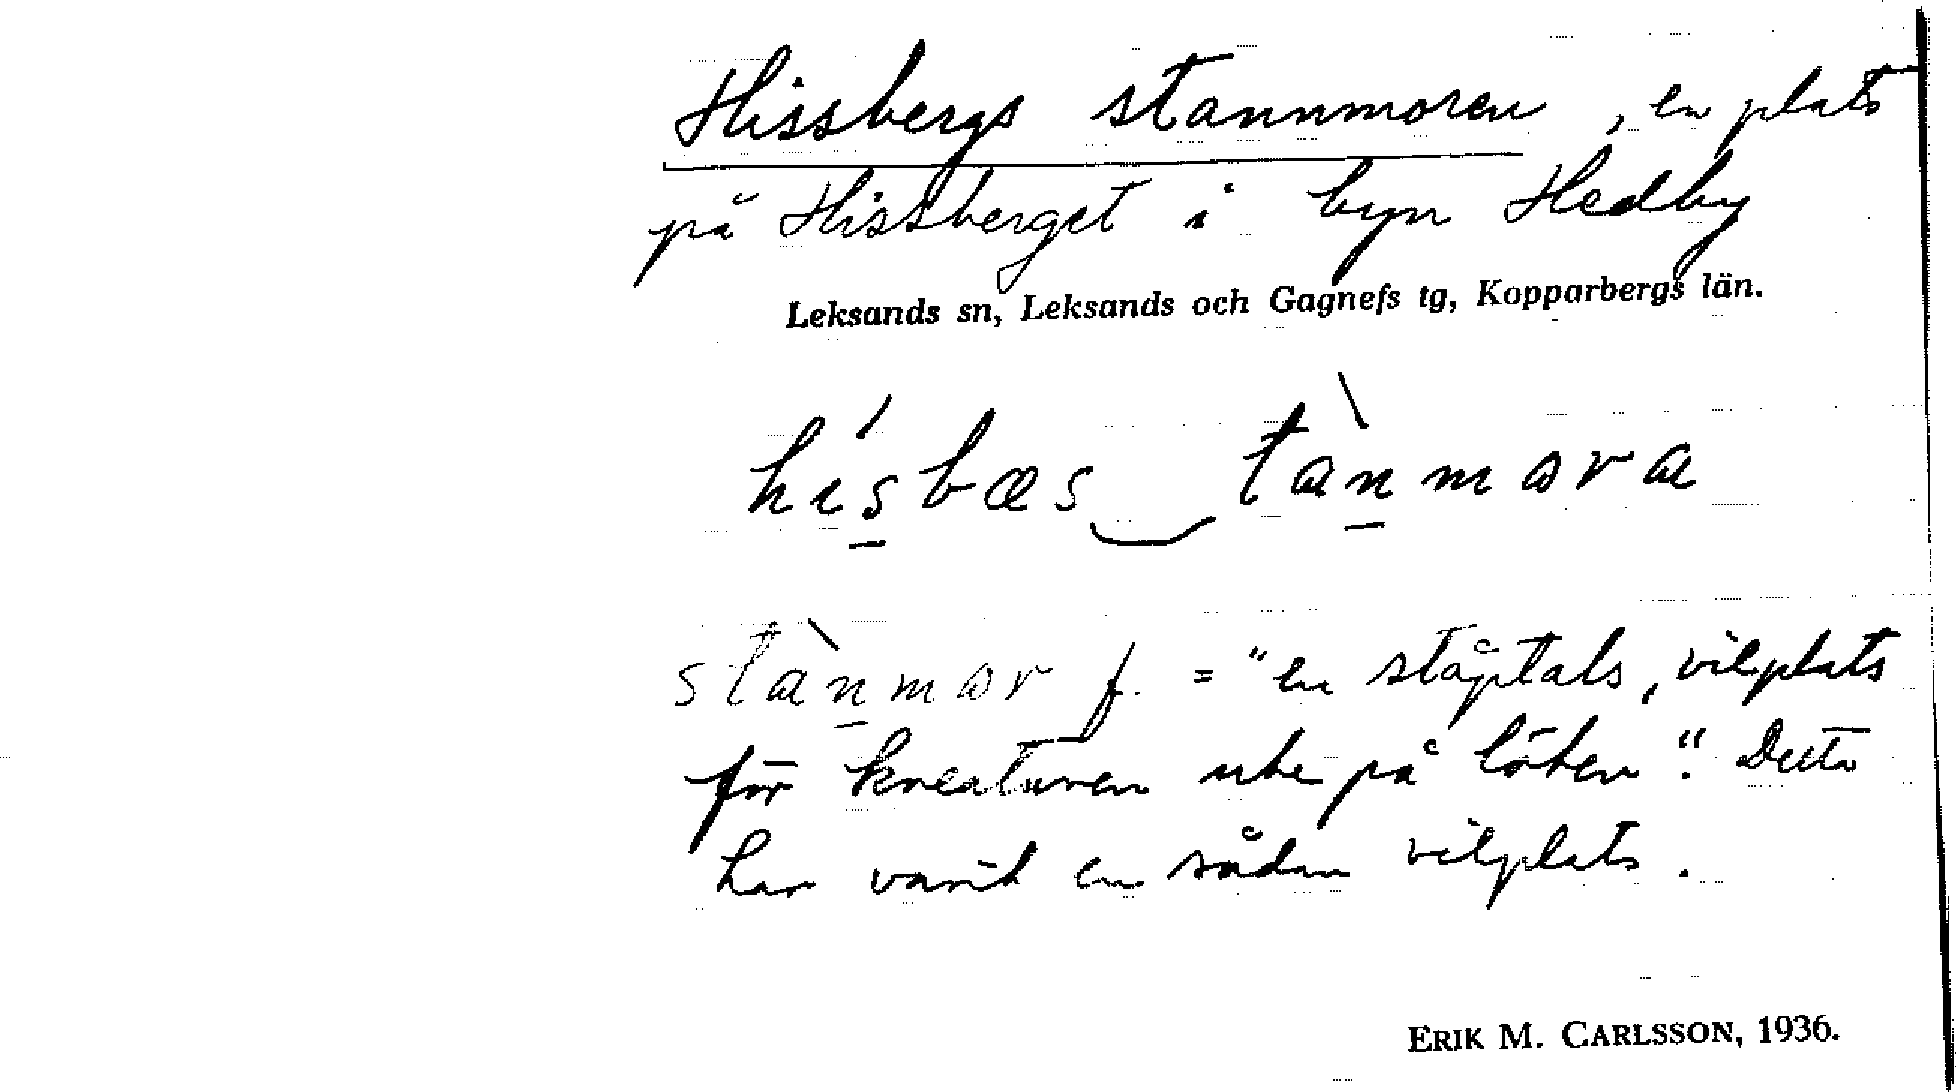 Hissbergs stannmoren, en plats
på Hissberget i byn Hedby
Leksands sn, Leksands och Gagnefs tg, Kopparbergs län.
hísbæs‿tànmσra
stànmσr f. = "en ståptals, vilplats
för kreaturen ute på löten". Detta
har varit en sådan vilplats.
ERIK M. CARLSSON, 1936.